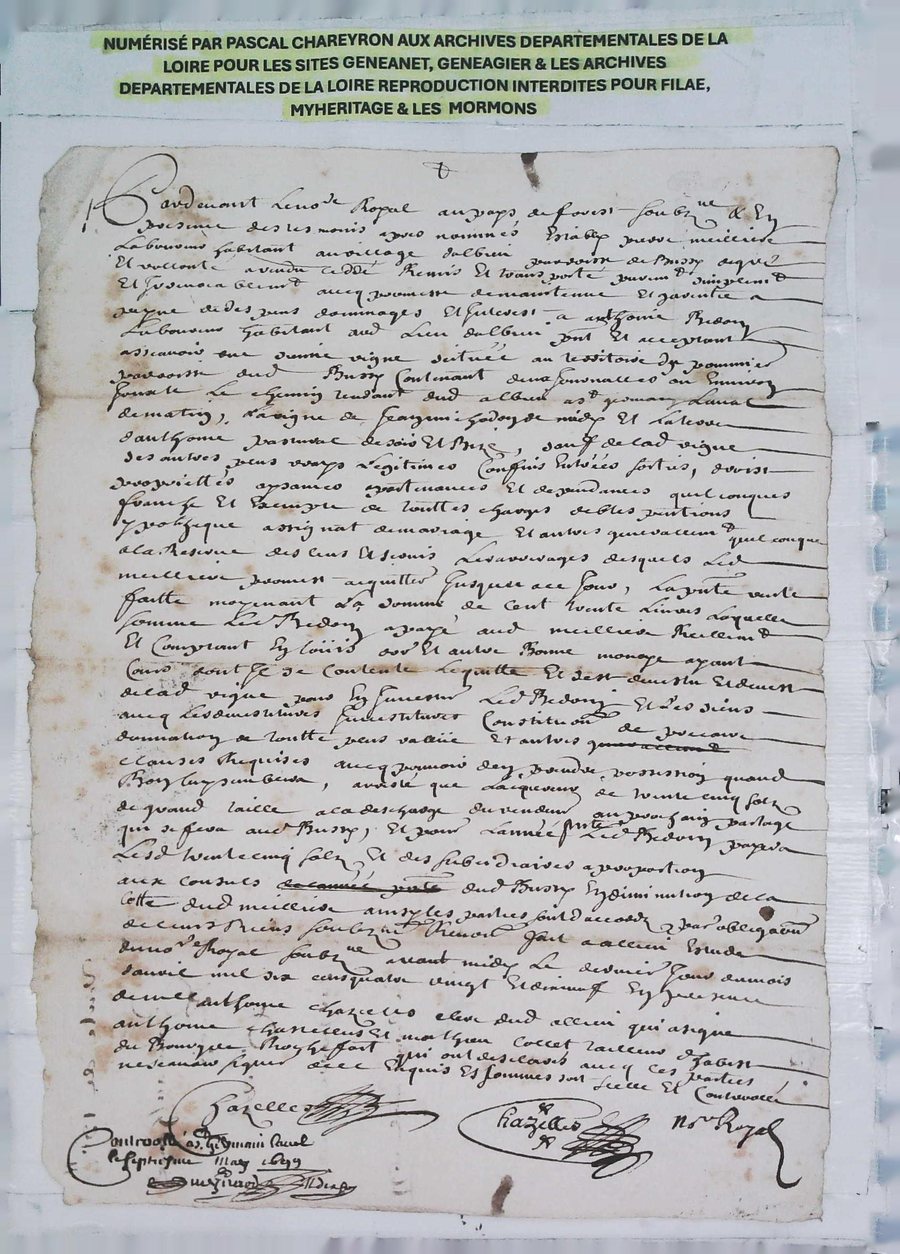 NUMÉRISÉ PAR PASCAL CHAREYRON AUX ARCHIVES DEPARTEMENTALES DE LA
LOIRE POUR LES SITES GENEANET, GENEAGIER & LES ARCHIVES
DEPARTEMENTALES DE LA LOIRE REPRODUCTION INTERDITES POUR FILAE,
MYHERITAGE & LES MORMONS
Pardevant Le no.re Royal au pays de forest soubz.ne & En
presence des tesmoins apres nommes Estably pierre meilliere
Laboureur habitant au village dalbieu parroisse de Bussy de gré
Et vollonté a vendu cedde Remis Et transporté purem.t simplem.t
Et Irrevocablem.t avecq promesse de maintenue Et garentie a
peyne de des pens dommages Et Interest a anthoine Bedoin
Laboureur habitant aud Lieu dalbieu p.nt Et acceptant
assavoir une vigne scituée au territoire du pommier
parroisse dud Bussy Contenant deux Journalles ou Environ
Jouxte Le chemin tendant dud albieu a S.t germain Laval
de matin, La vigne de de midy Et La terre
danthoine pascal de soir Et Bize, sauf de lad vigne
ses autres plus vrays Legitimes Confins Entrées sorties, droits
proprietes aysances apartenances Et dependances quelconques
franche Et Exempte de touttes charges debtes pentions
ypotheque assignat de mariage Et autres generallem.t quelconque
a la Reserve des cens Et servis Les arrerages desquels Led
meilliere promet acquitter Jusques a ce Jour, La p.nte vente
faitte moyenant La somme de cent trente Livres Laquelle
somme Led Bedoin a payé aud meilliere Reellem.t
Et Comptant En Louis dor Et autre Bonne monoye ayant
Cours dont Il se Contente Lequitte Et sest demetu Et devest
de lad vigne pour En Investir Led Bedoin Et Les siens
avecq Les devestitures Investitures Constitution de precaire
donnation de toutte plus vallue Et autres
clauses Requises avecq pouvoir den prendre possession quand
Bon luy semblera, arresté que Lacquereur de vingt cinq solz
de grand taille a la descharge du vendeur au prochain partage
qui se fera aud Bussy, Et pour Lannée p.nte Led Bedoin payera
Lesd vingt cinq solz Et des subcidiaires a proportion
aux consuls dud Bussy En diminution de la
Cotte dud meilliere ainsy les parties sont daccord par obligation
de leurs Biens fait a allieu Estude
du no.re Royal soubz.ne avant midy Le dernier Jour du mois
davril mil six cens quatre vingt Et dix neuf En presence
de m.re anthoine chazelles clerc dud allieu qui a signé
anthoine chazelles Et mathieu Collet tailleur dhabit
du Bourg de Rochefort qui ont desclaré avecq Les parties
ne scavoir signer de ce Enquis Et sommes soit scellé Et Controollé
Chazelles Chazelles No.re Royal
Controollé a S.t germain Laval
le septiesme May 1699